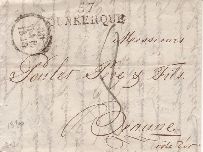 57
DUNKERQUE
Messieurs
Poulet Père & Fils
Beaune
Côte d'or